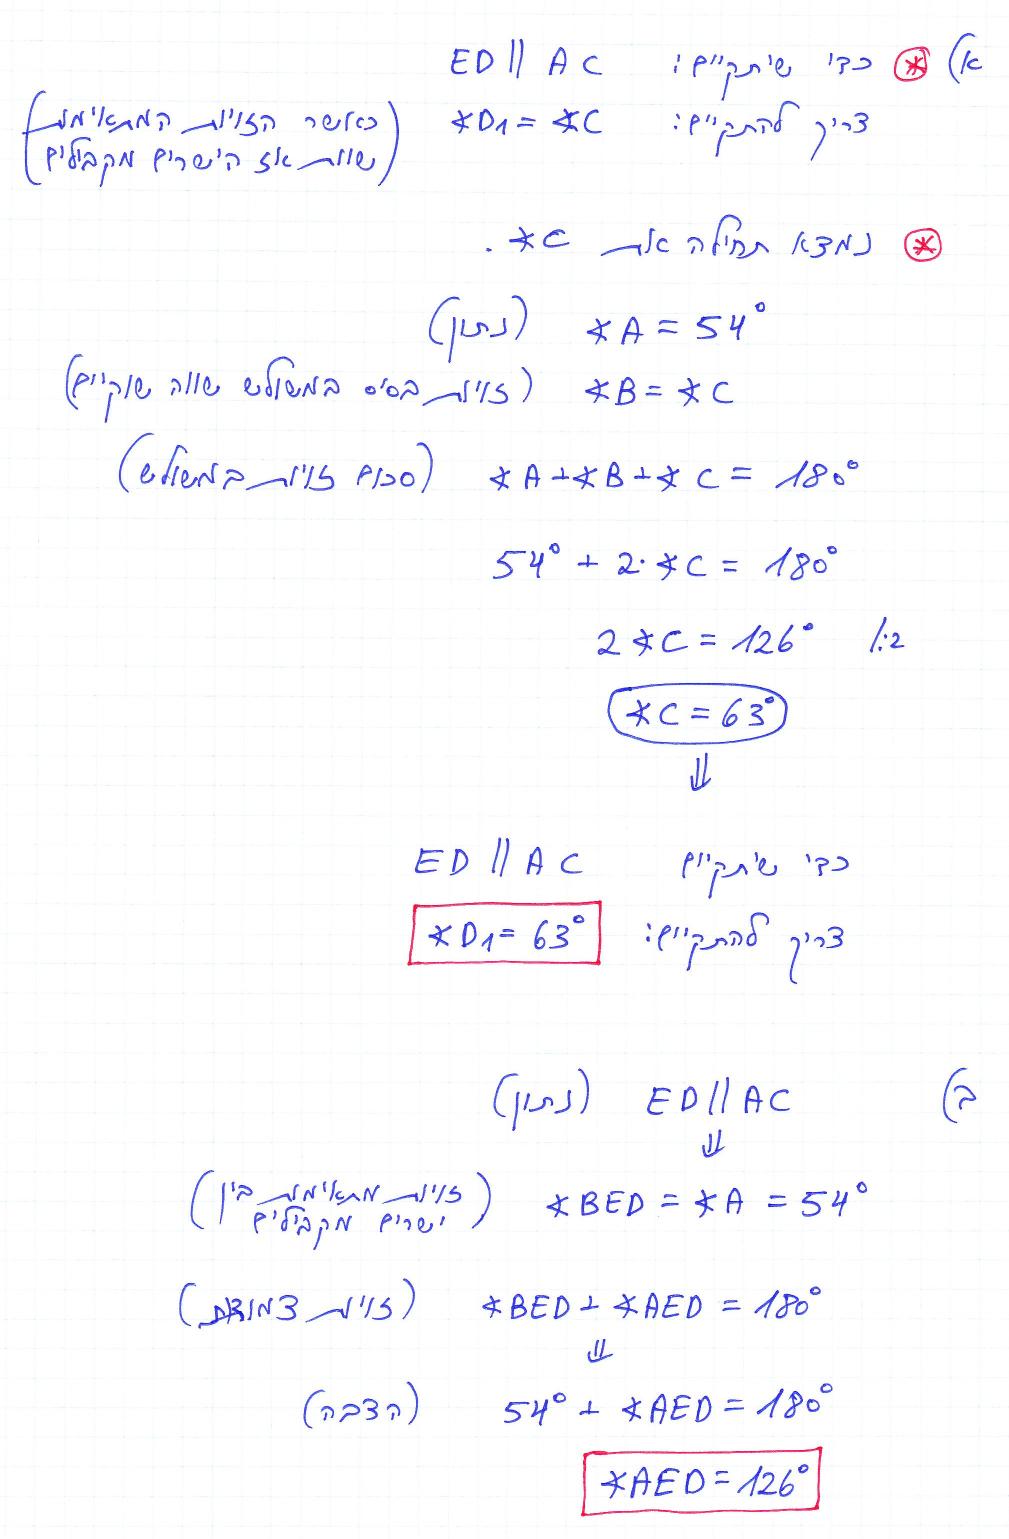 א) ⊛ כדי שיתקיים: ED || AC
צריך להתקיים: ∢D1 = ∢C (כאשר הזויות המתאימות
שוות אז הישרים מקבילים)
⊛ נמצא תחילה את ∢C.
∢A = 54° (נתון)
∢B = ∢C (זוית בסיס במשולש שווה שוקיים)
∢A + ∢B + ∢C = 180° (סכום זויות במשולש)
54° + 2·∢C = 180°
2∢C = 126° /:2
∢C = 63°
⇓
כדי שיתקיים ED || AC
צריך להתקיים: ∢D1 = 63°
ב) ED || AC (נתון)
⇓
∢BED = ∢A = 54° (זויות מתאימות בין
ישרים מקבילים)
∢BED + ∢AED = 180° (זויות צמודות)
⇓
54° + ∢AED = 180° (הצבה)
∢AED = 126°